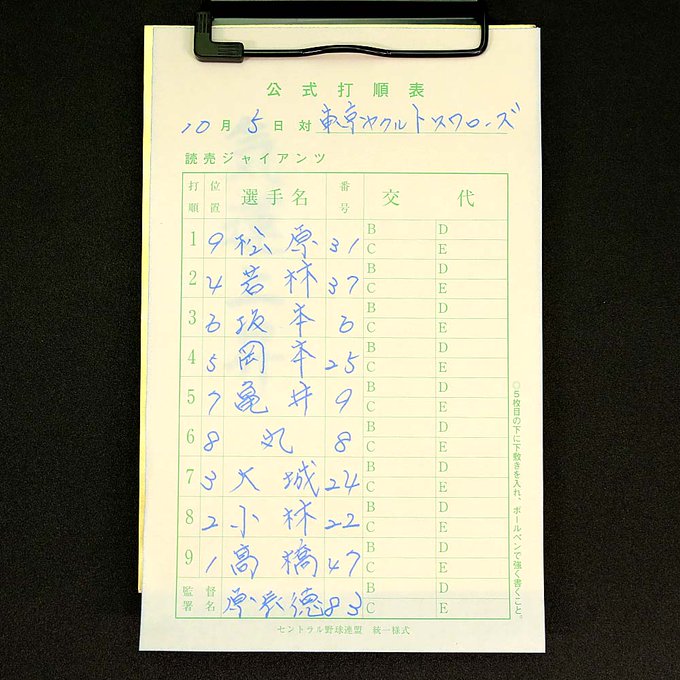 公式打順表
10月5日 対 東京ヤクルトスワローズ
読売ジャイアンツ
打順 位置 選手名 番号 交代
1 9 松原 31 B D C E
2 4 若林 37 B D C E
3 6 坂本 6 B D C E
4 5 岡本 25 B D C E
5 7 亀井 9 B D C E
6 8 丸 8 B D C E
7 3 大城 24 B D C E
8 2 小林 22 B D C E
9 1 高橋 47 B D C E
監督署名 原辰徳 83 B D C E
セントラル野球連盟 統一様式
○5枚目の下に下敷きを入れ、ボールペンで強く書くこと。